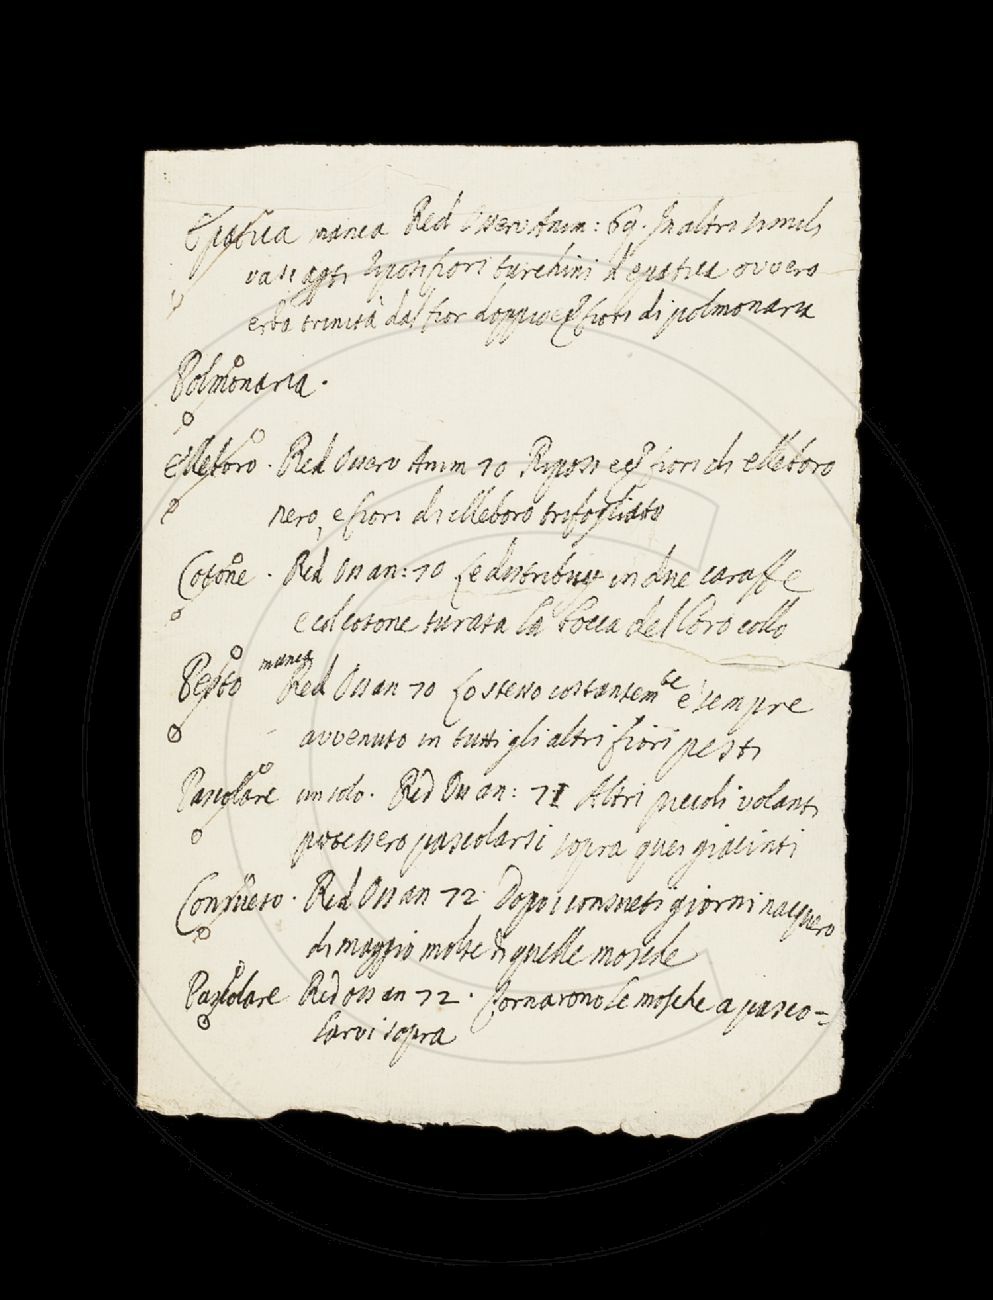 Epatica manca Red Osserv Anim: 69. In altri simili
vasi aggti riposi fiori turchini d'epatica ovvero
erba trinità dal fior doppio e fiori di polmonaria
Polmonaria.
Elleboro. Red Osserv Anim 70 Riposi e fiori di elleboro
nero, e fiori di elleboro trifogliato
Cotone. Red Oss an: 70 Le distribuij in due caraffe
e col cotone turata la bocca del loro collo
Pesto manca Red Oss an 70 Lo stesso costantemte è sempre
avvenuto in tutti gli altri fiori pesti
Pascolare un solo. Red Oss an: 71 Altri piccoli volanti
potessero pascolarsi sopra quei giacinti
Consueto. Red Oss an 72. Dopo i consueti giorni nacquero
di maggio molte di quelle mosche
Pascolare Red oss an 72. Tornarono le mosche a pasco=
larvi sopra